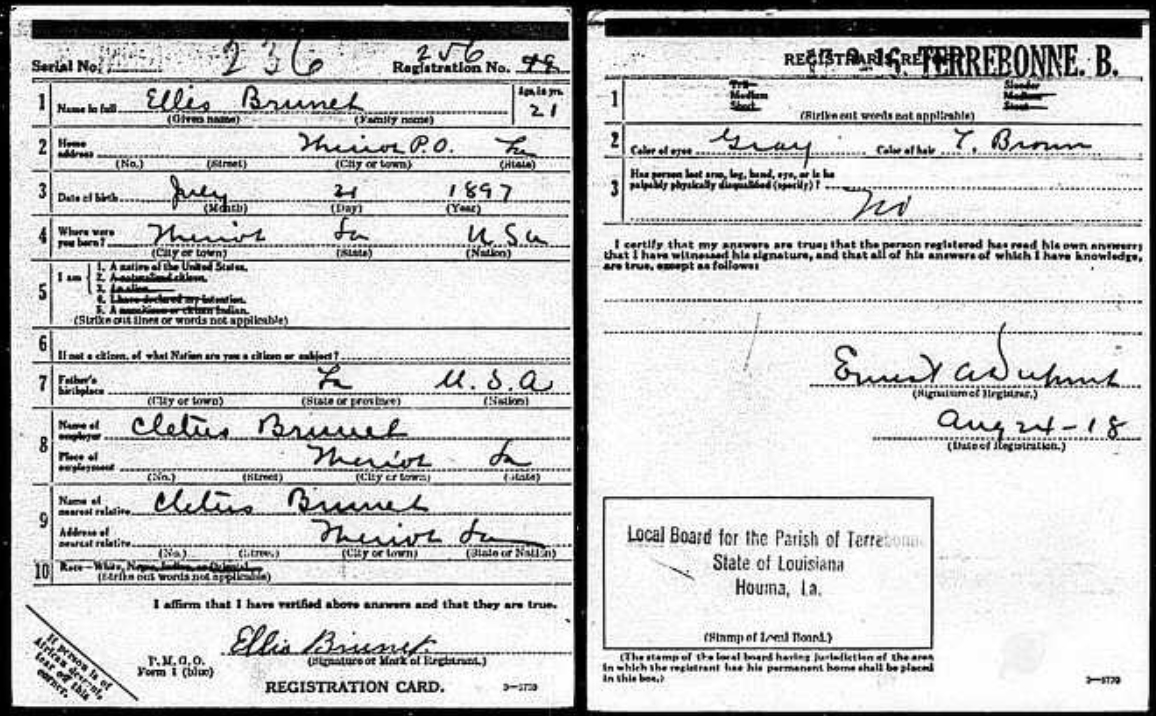 Serial No. 236 Registration No. 256
1 Name in full Ellis Brunet Age, in yrs. 21
(Given name) (Family name)
2 Home address Theriot P.O. La
(No.) (Street) (City or town) (State)
3 Date of birth July 21 1897
(Month) (Day) (Year)
4 Where were you born? Theriot La USA
(City or town) (State) (Nation)
5 I am
1. A native of the United States.
2. A naturalized citizen.
3. An alien.
4. I have declared my intention.
5. A noncitizen or citizen Indian.
(Strike out lines or words not applicable)
6 If not a citizen, of what Nation are you a citizen or subject?
7 Father's birthplace La U.S.A
(City or town) (State or province) (Nation)
8 Name of employer Cletus Brunet
Place of employment Theriot La
(No.) (Street) (City or town) (State)
9 Name of nearest relative Cletus Brunet
Address of nearest relative Theriot La
(No.) (Street) (City or town) (State or Nation)
10 Race—White, Negro, Indian, or Oriental
(Strike out words not applicable)
I affirm that I have verified above answers and that they are true.
Ellis Brunet
(Signature or Mark of Registrant.)
P. M. G. O.
Form 1 (blue)
REGISTRATION CARD. 3—5779
If person is of
African descent,
tear off this
corner.
REGISTRAR'S TERREBONNE. B.
1 Tall Medium Short Slender Medium Stout
(Strike out words not applicable)
2 Color of eyes Gray Color of hair L. Brown
3 Has person lost arm, leg, hand, eye, or is he
palpably physically disqualified (specify)?
No
I certify that my answers are true; that the person registered has read his own answers;
that I have witnessed his signature, and that all of his answers of which I have knowledge,
are true, except as follows:
Ernest A Dupont
(Signature of Registrar.)
Aug 24-18
(Date of Registration.)
Local Board for the Parish of Terrebonne
State of Louisiana
Houma, La.
(Stamp of Local Board.)
(The stamp of the local board having jurisdiction of the area
in which the registrant has his permanent home shall be placed
in this box.)
3—5779